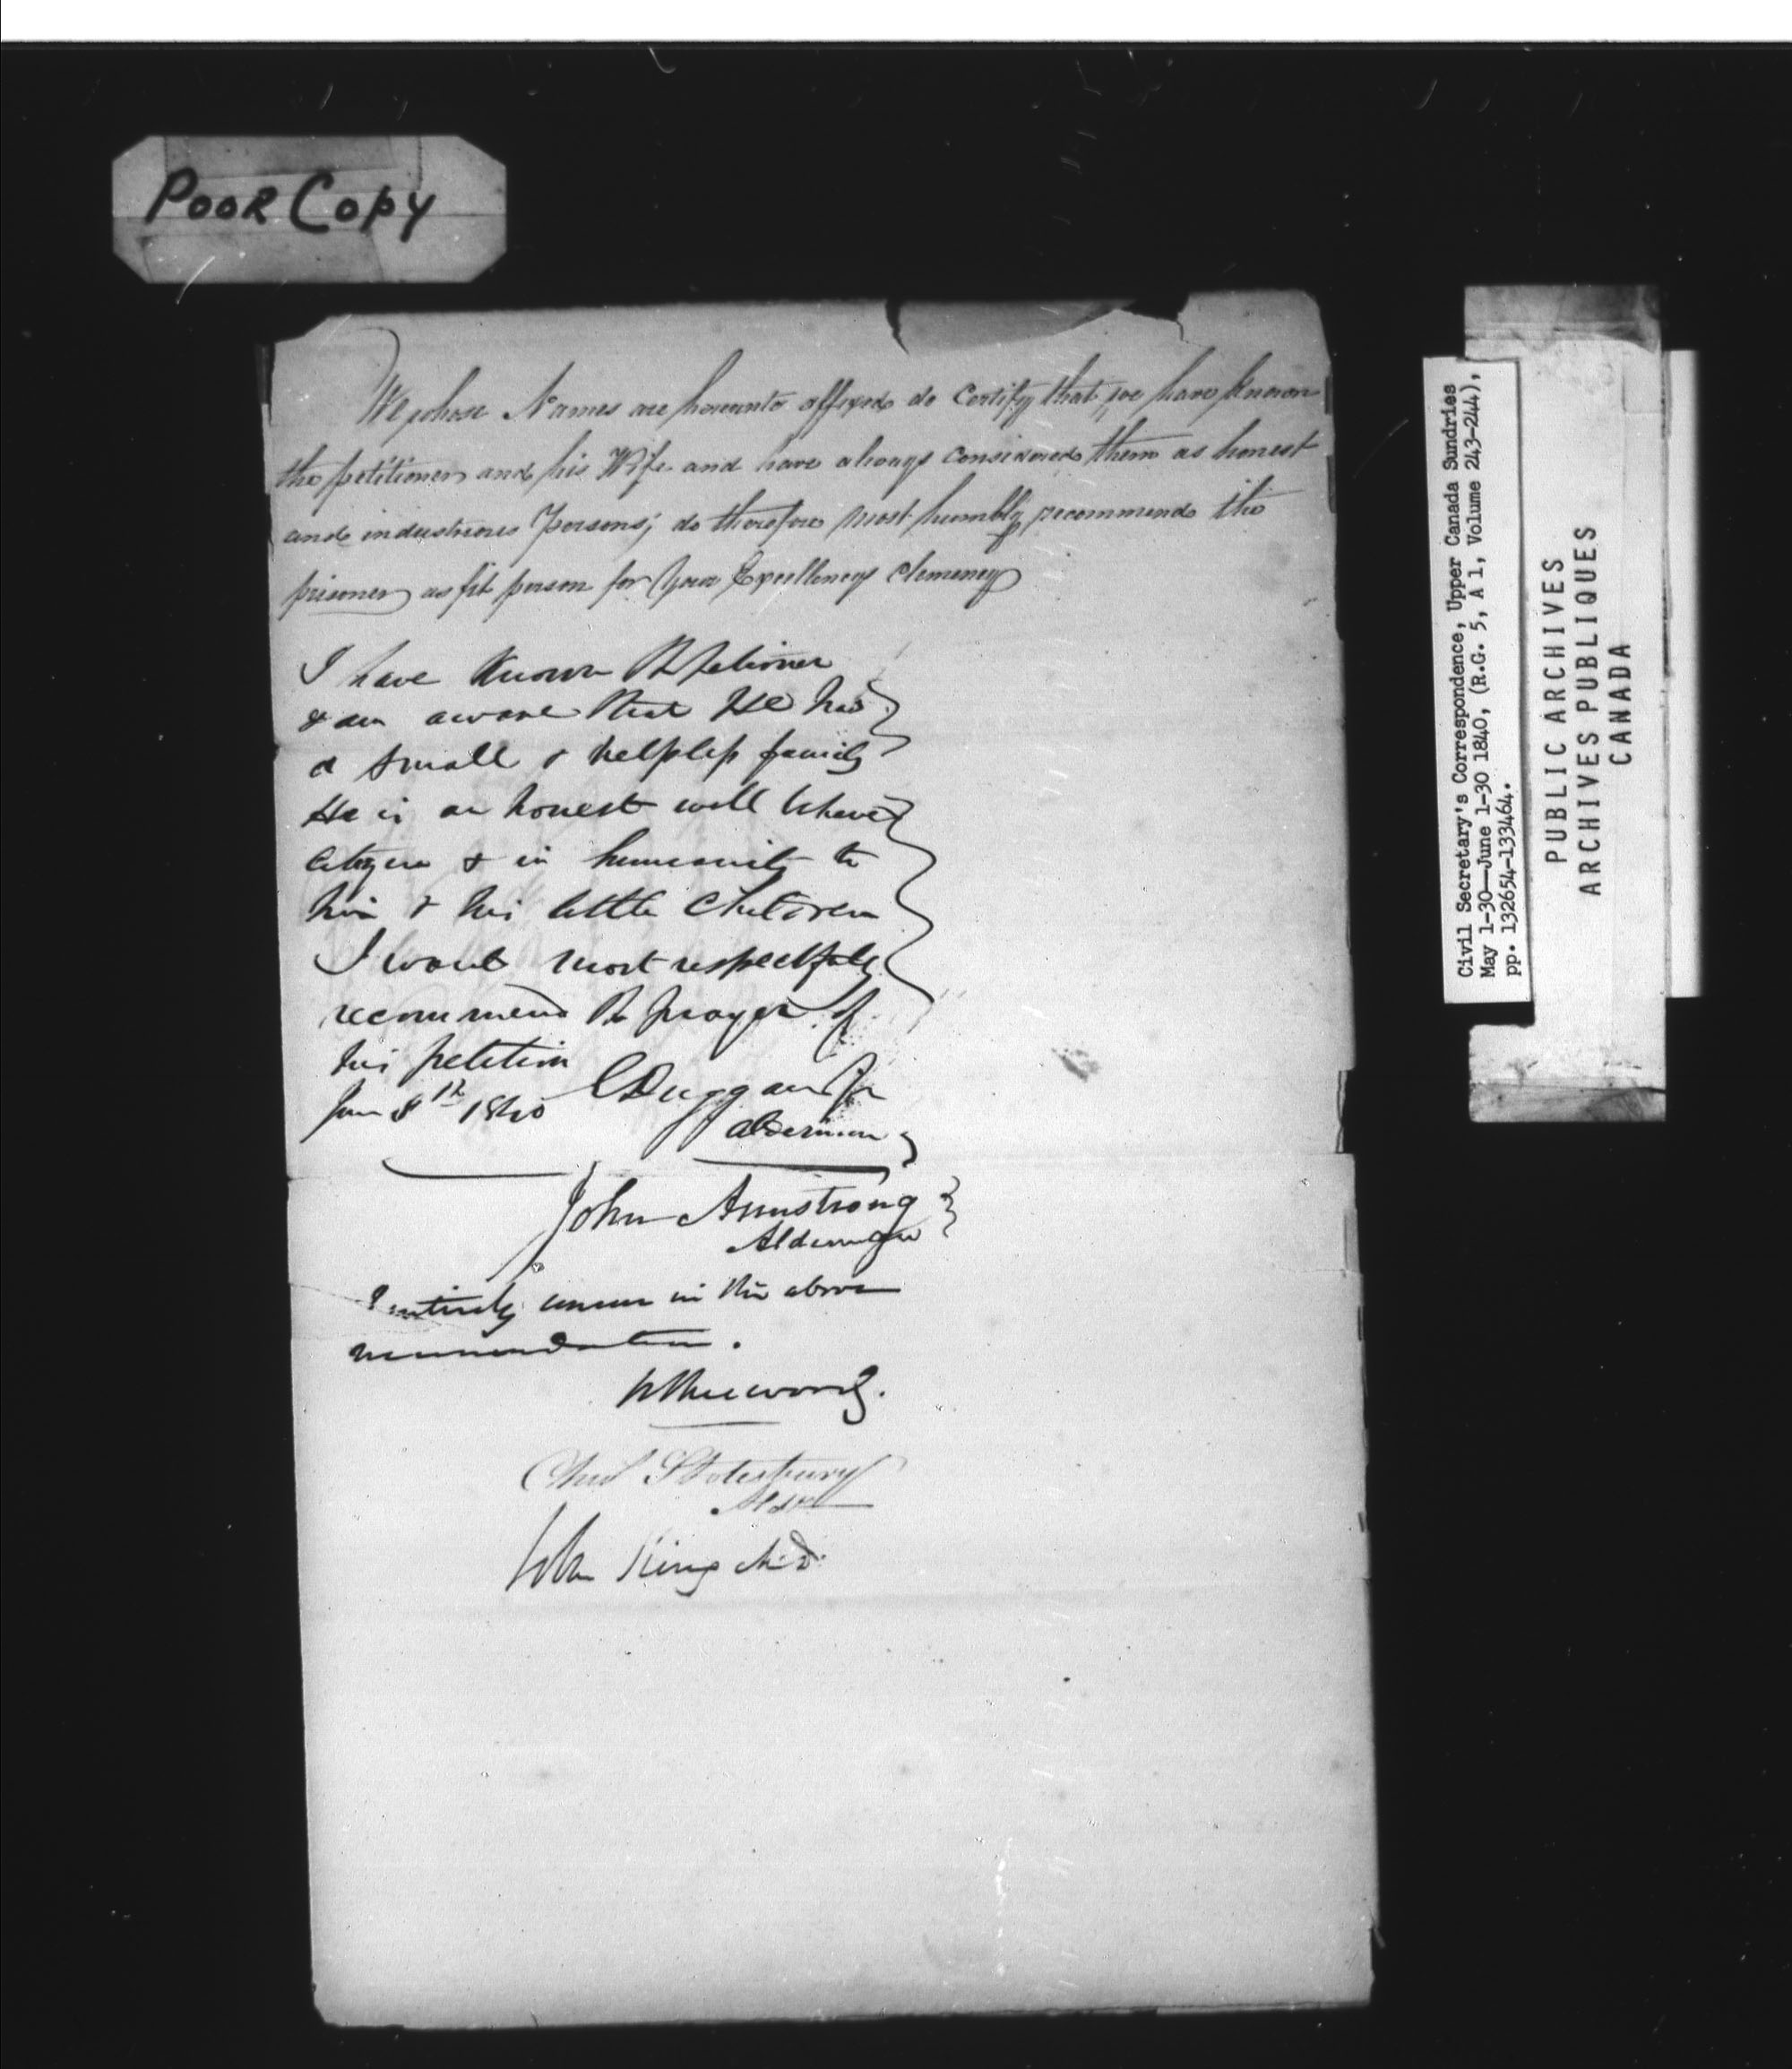 POOR COPY
We whose Names are hereunto affixed do Certify that we have known
the petitioner and his Wife and have always considered them as honest
and industrious Persons; do therefore most humbly recommend the
prisoner as fit person for Your Excellencys Clemency
I have known Petitioner
& am aware that He has
a small & helpless family
He is an honest well behaved
Citizen & in humanity to
him & his little Children
I would most respectfuly
recommend the prayer of
his petition
June 8th 1840 G Duggan Jr
Alderman
John Armstrong
Alderman
I entirely concur in the above
recommendation.
Chas Stotesbury
Aldn
John King M.D.
Civil Secretary's Correspondence, Upper Canada Sundries
May 1-30—June 1-30 1840, (R.G. 5, A 1, Volume 243-244),
pp. 132654-133464.
PUBLIC ARCHIVES
ARCHIVES PUBLIQUES
CANADA